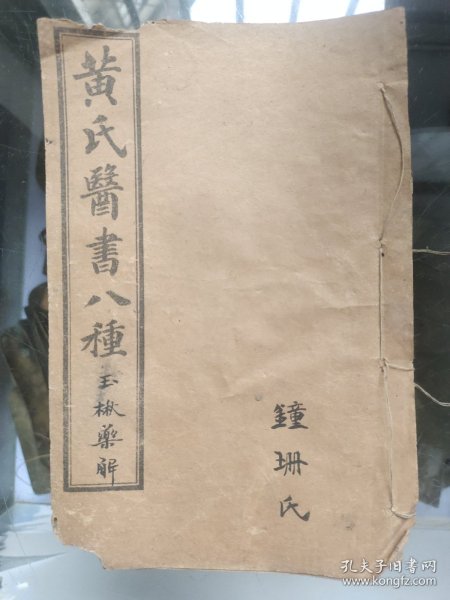 黄氏醫書八種
玉楸藥解
鐘珊氏
孔夫子旧书网
www.kongfz.com